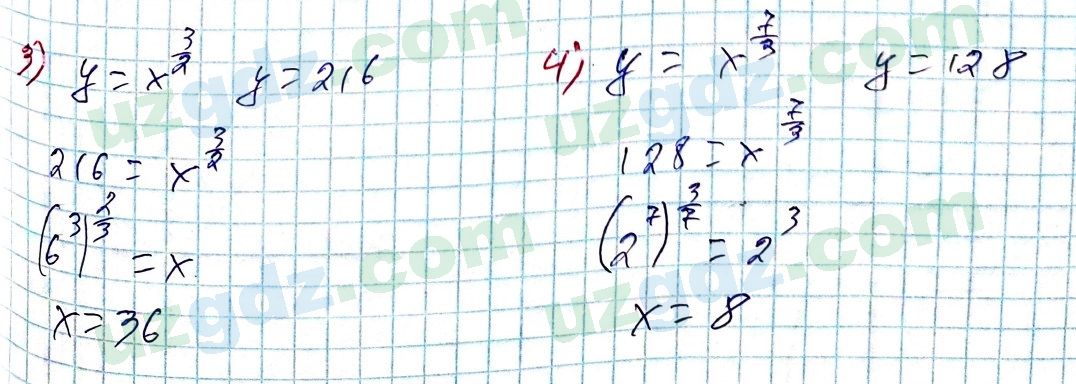 3) y = x^{3/2} y = 216
216 = x^{3/2}
(6^3)^{2/3} = x
x = 36
4) y = x^{7/3} y = 128
128 = x^{7/3}
(2^7)^{3/7} = 2^3
x = 8
uzgdz.com
uzgdz.com
uzgdz.com
uzgdz.com